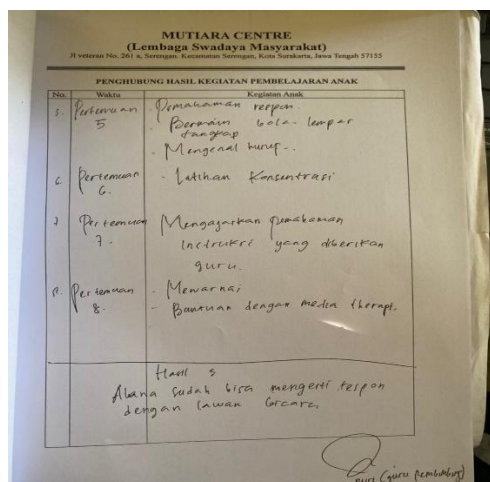 MUTIARA CENTRE
(Lembaga Swadaya Masyarakat)
Jl veteran No. 261 a, Serengan. Kecamatan Serengan, Kota Surakarta, Jawa Tengah 57155
PENGHUBUNG HASIL KEGIATAN PEMBELAJARAN ANAK
No. Waktu Kegiatan Anak
5. Pertemuan 5 . Pemahaman respon.
. Bermain bola lempar tangkap
. Mengenal huruf..
6. Pertemuan 6. - Latihan Konsentrasi
7 Pertemuan 7. Mengajarkan pemahaman
instruksi yang diberikan
guru.
8. Pertemuan 8. - Mewarnai
- Bantuan dengan media therapi.
Hasil :
sudah bisa mengerti respon
dengan lawan bicara
(guru pembimbing)